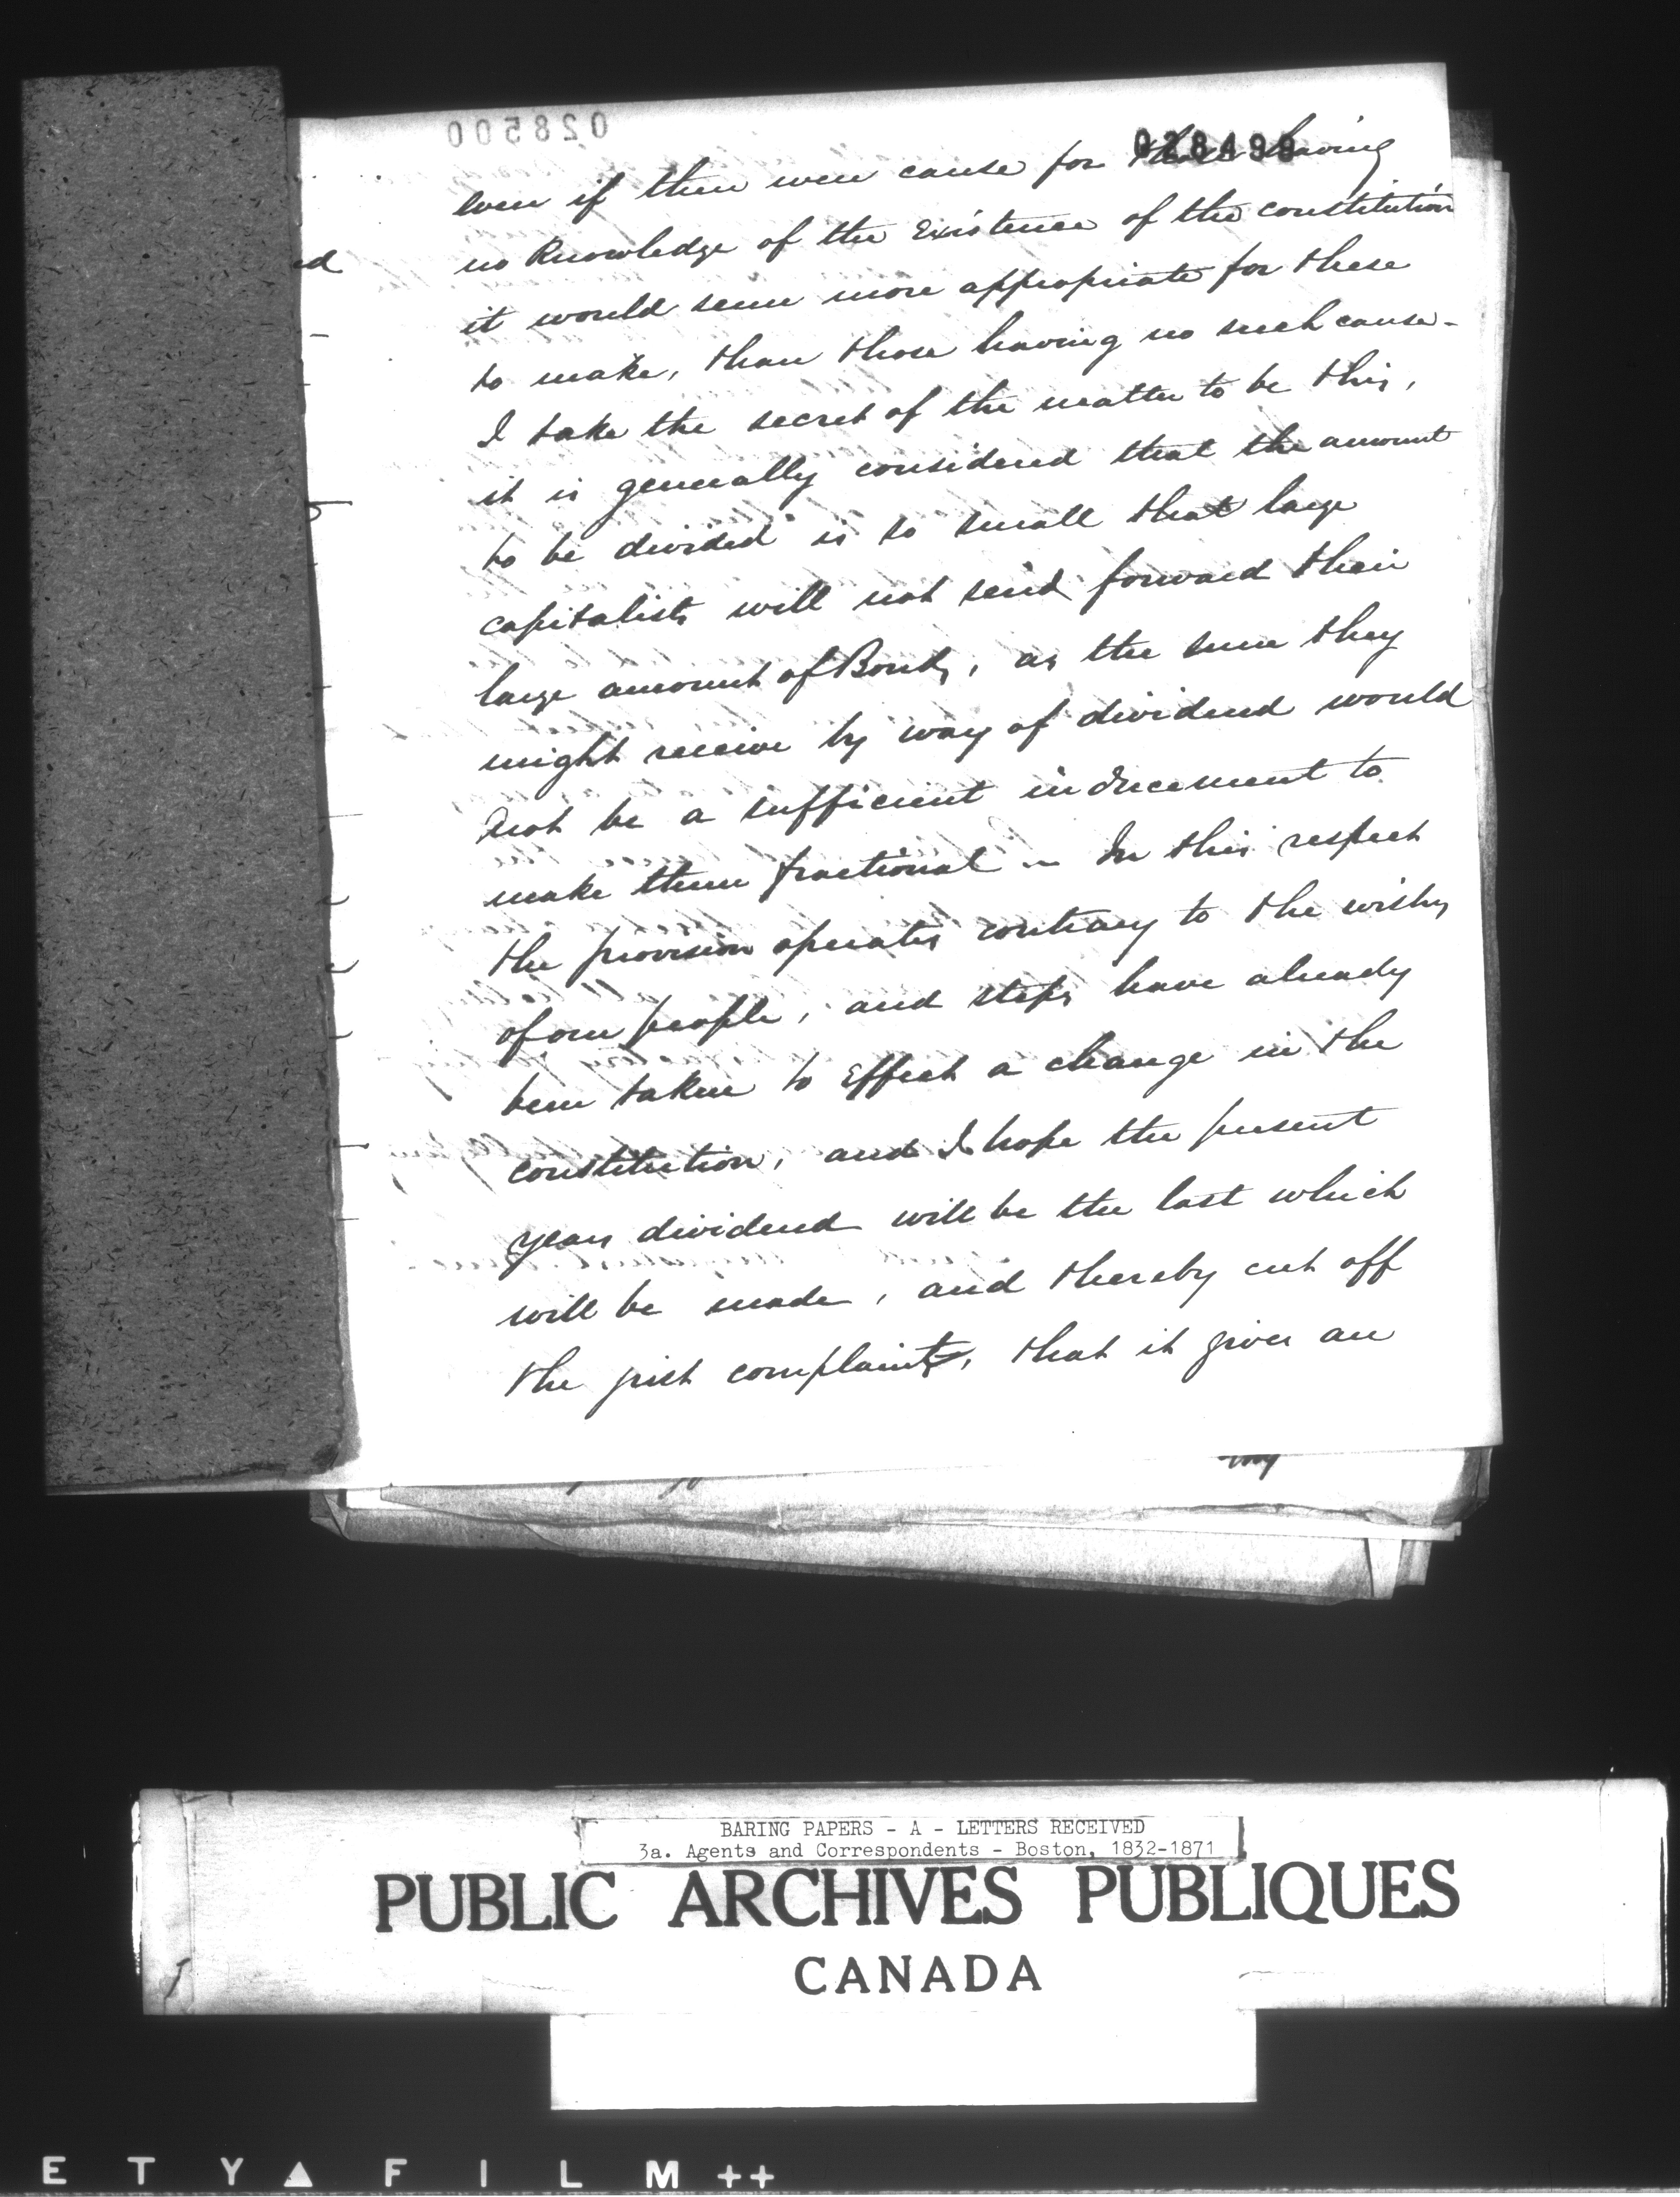 028499
even if there were cause for those having
no Knowledge of the Existence of the constitution
it would seem more appropriate for these
to make, than those having no such cause -
I take the secret of the matter to be this,
it is generally considered that the amount
to be divided is so small that large
capitalists will not send forward their
large amount of Bonds, as the sum they
might receive by way of dividend would
not be a sufficient inducement to
make them fractional - In this respect
the provision operates contrary to the wishes
of our people, and steps have already
been taken to Effect a change in the
constitution, and I hope the present
years dividend will be the last which
will be made, and thereby cut off
the just complaints, that it gives an
BARING PAPERS - A - LETTERS RECEIVED
3a. Agents and Correspondents - Boston, 1832-1871
PUBLIC ARCHIVES PUBLIQUES
CANADA
E T Y ▲ F I L M ++